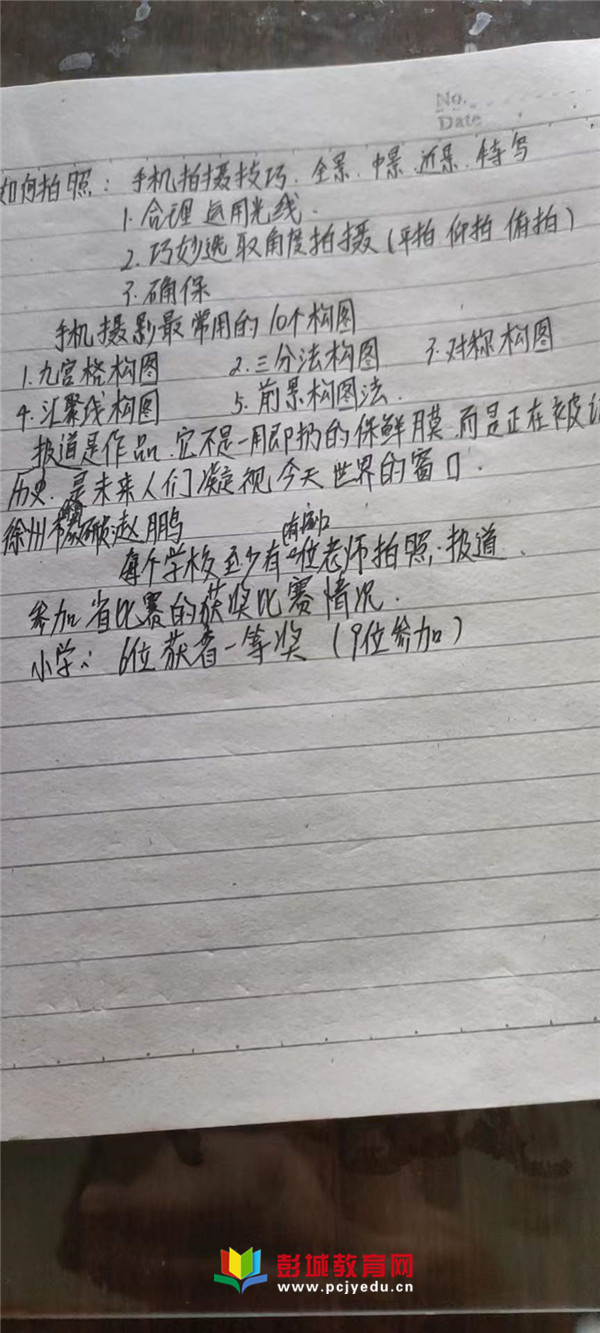 No.
Date
如何拍照：手机拍摄技巧.全景.中景.近景.特写
1.合理运用光线.
2.巧妙选取角度拍摄(平拍 仰拍 俯拍)
3.确保
手机摄影最常用的10个构图
1.九宫格构图 2.三分法构图 3.对称构图
4.汇聚线构图 5.前景构图法.
报道是作品.它不是一用即扔的保鲜膜.而是正在被
历史.是未来人们凝视今天世界的窗口.
徐州 赵鹏
每个学校至少有2位老师拍照.报道.
参加省比赛的获奖比赛情况.
小学：6位获着一等奖(9位参加)
彭城教育网
www.pcjyedu.cn